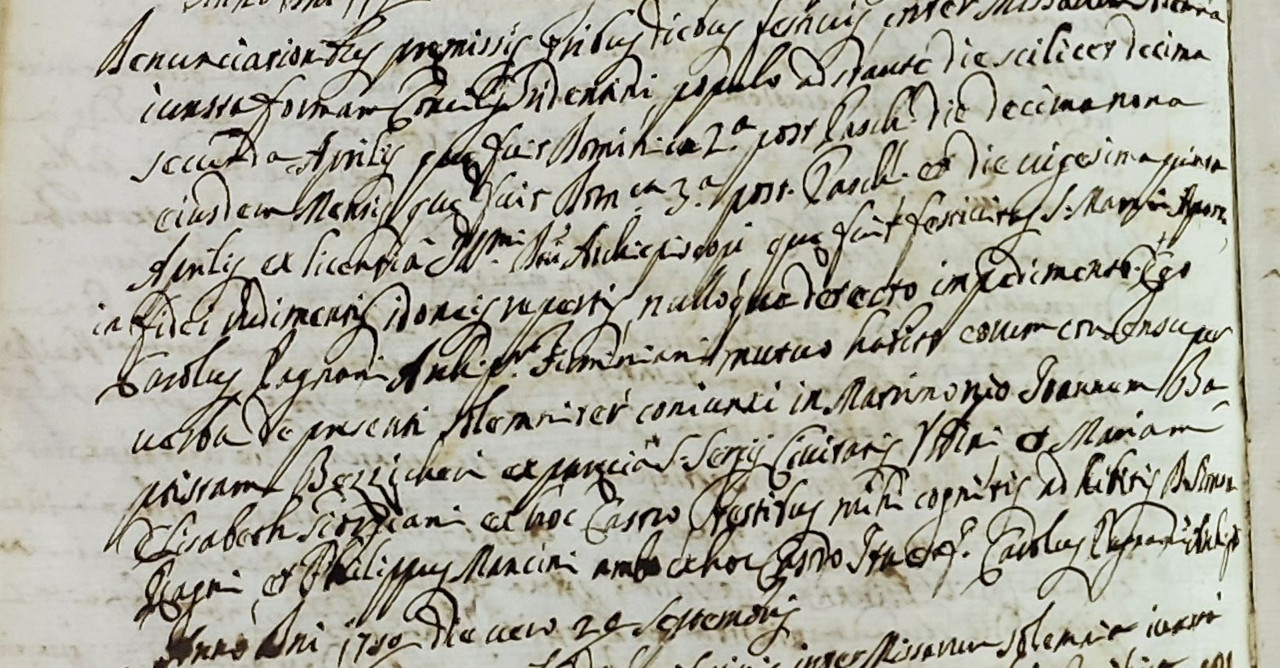 Anno Dni
Denunciationibus premissis tribus diebus festivis inter Missarum
iuxta formam Concilij Tridentini populo adstante die scilicet decima
secunda Aprilis que fuit Dominica 2.a post Pasch. die decima nona
eiusdem Mensis que fuit Domca 3.a post. Pasch. et die vigesima quinta
Aprilis ex licentia Illmi Archiepiscopi que fuit festivitas S. Marci
in fidei rudimentis idoneis repertis, nulloque detecto impedimento Ego
Carolus Pagnani Archipr. mutuo habito eorum consensu per
verba de presenti solemniter coniunxi in Matrimonio Ioannem Ba
ptistam ex parocia S. Sergij Civitatis Urbini et Mariam
Elisabeth ex hoc Castro testibus mihi cognitis adhibitis
et Philippus Mancini ambo ex hoc Castro Ita est. Carolus Pagnani
Anno Dni die vero 29 Septembris
inter Missarum solemnia